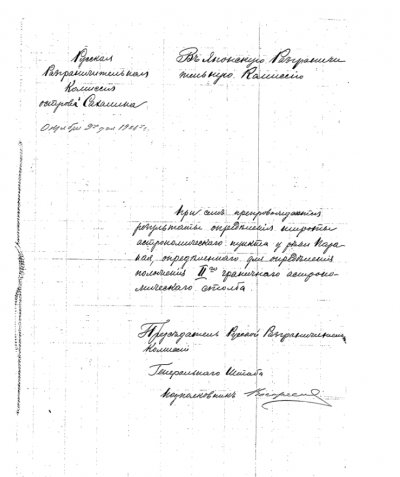 Русская
Разграничительная
Комиссия
острова Сахалина
Октября 9го дня 1906 г.
Въ Японскую Разграничи
тельную Комиссію
При семъ препровождаются
результаты опредѣленія широты
астрономическаго пункта у рѣки
опредѣленнаго для опредѣленія
положенія II го граничнаго астроно-
мическаго столба
Предсѣдатель Русской Разграничительной
Комиссіи
Генеральнаго Штаба
Подполковникъ